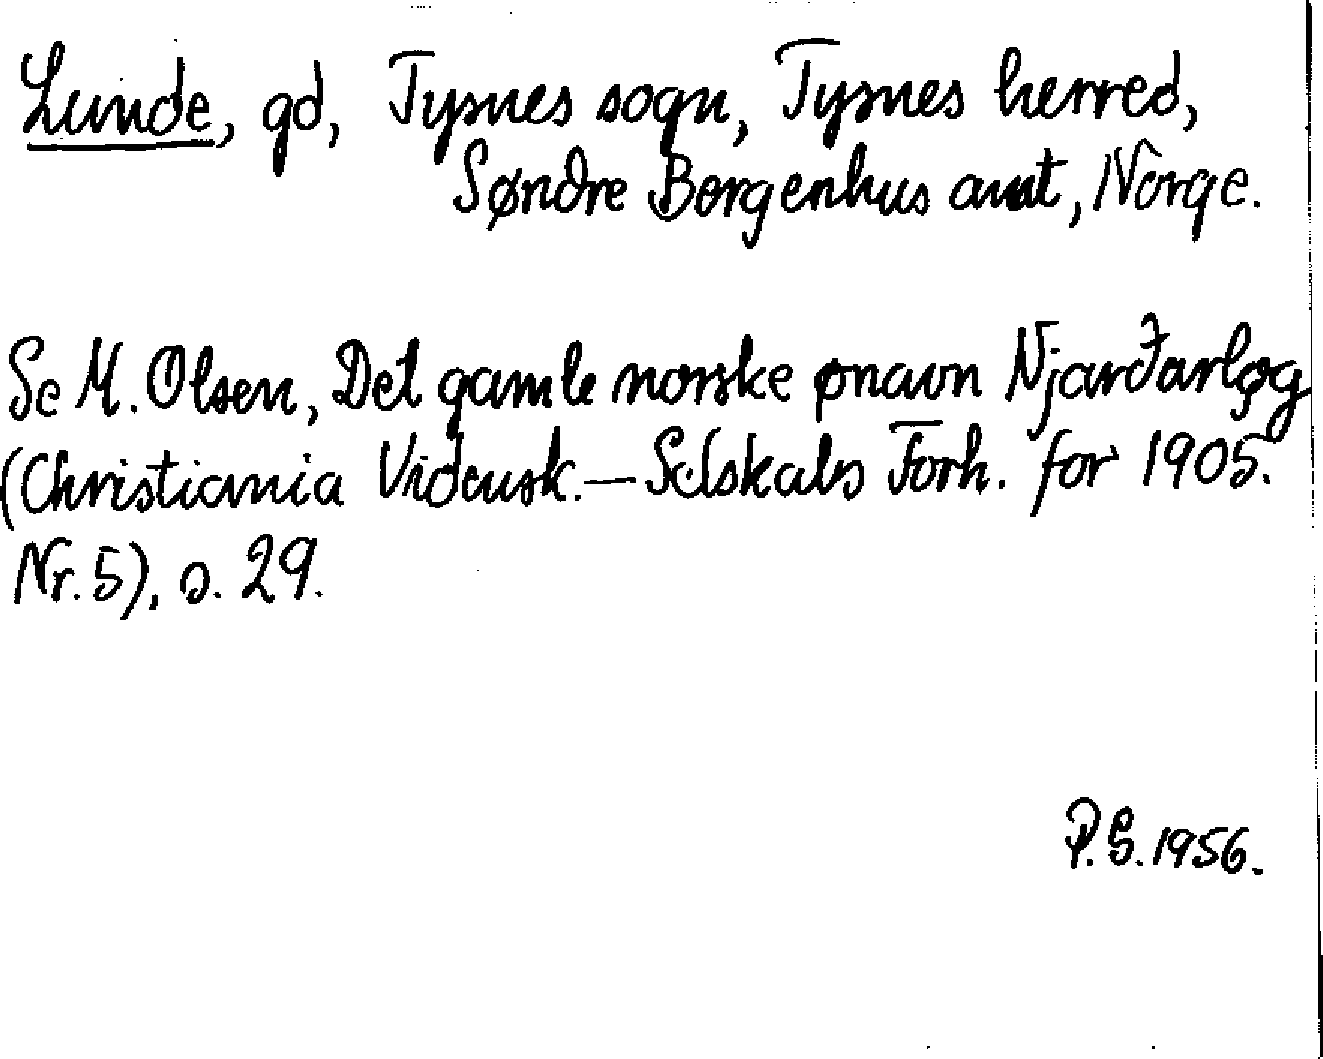 Lunde, gd, Tysnes sogn, Tysnes herred,
Søndre Bergenhus amt, Norge.
Se M. Olsen, Det gamle norske ønavn Njarðarlǫg
(Christiania Vidensk.-Selskabs Forh. for 1905.
Nr. 5), s. 29.
P.S. 1956.